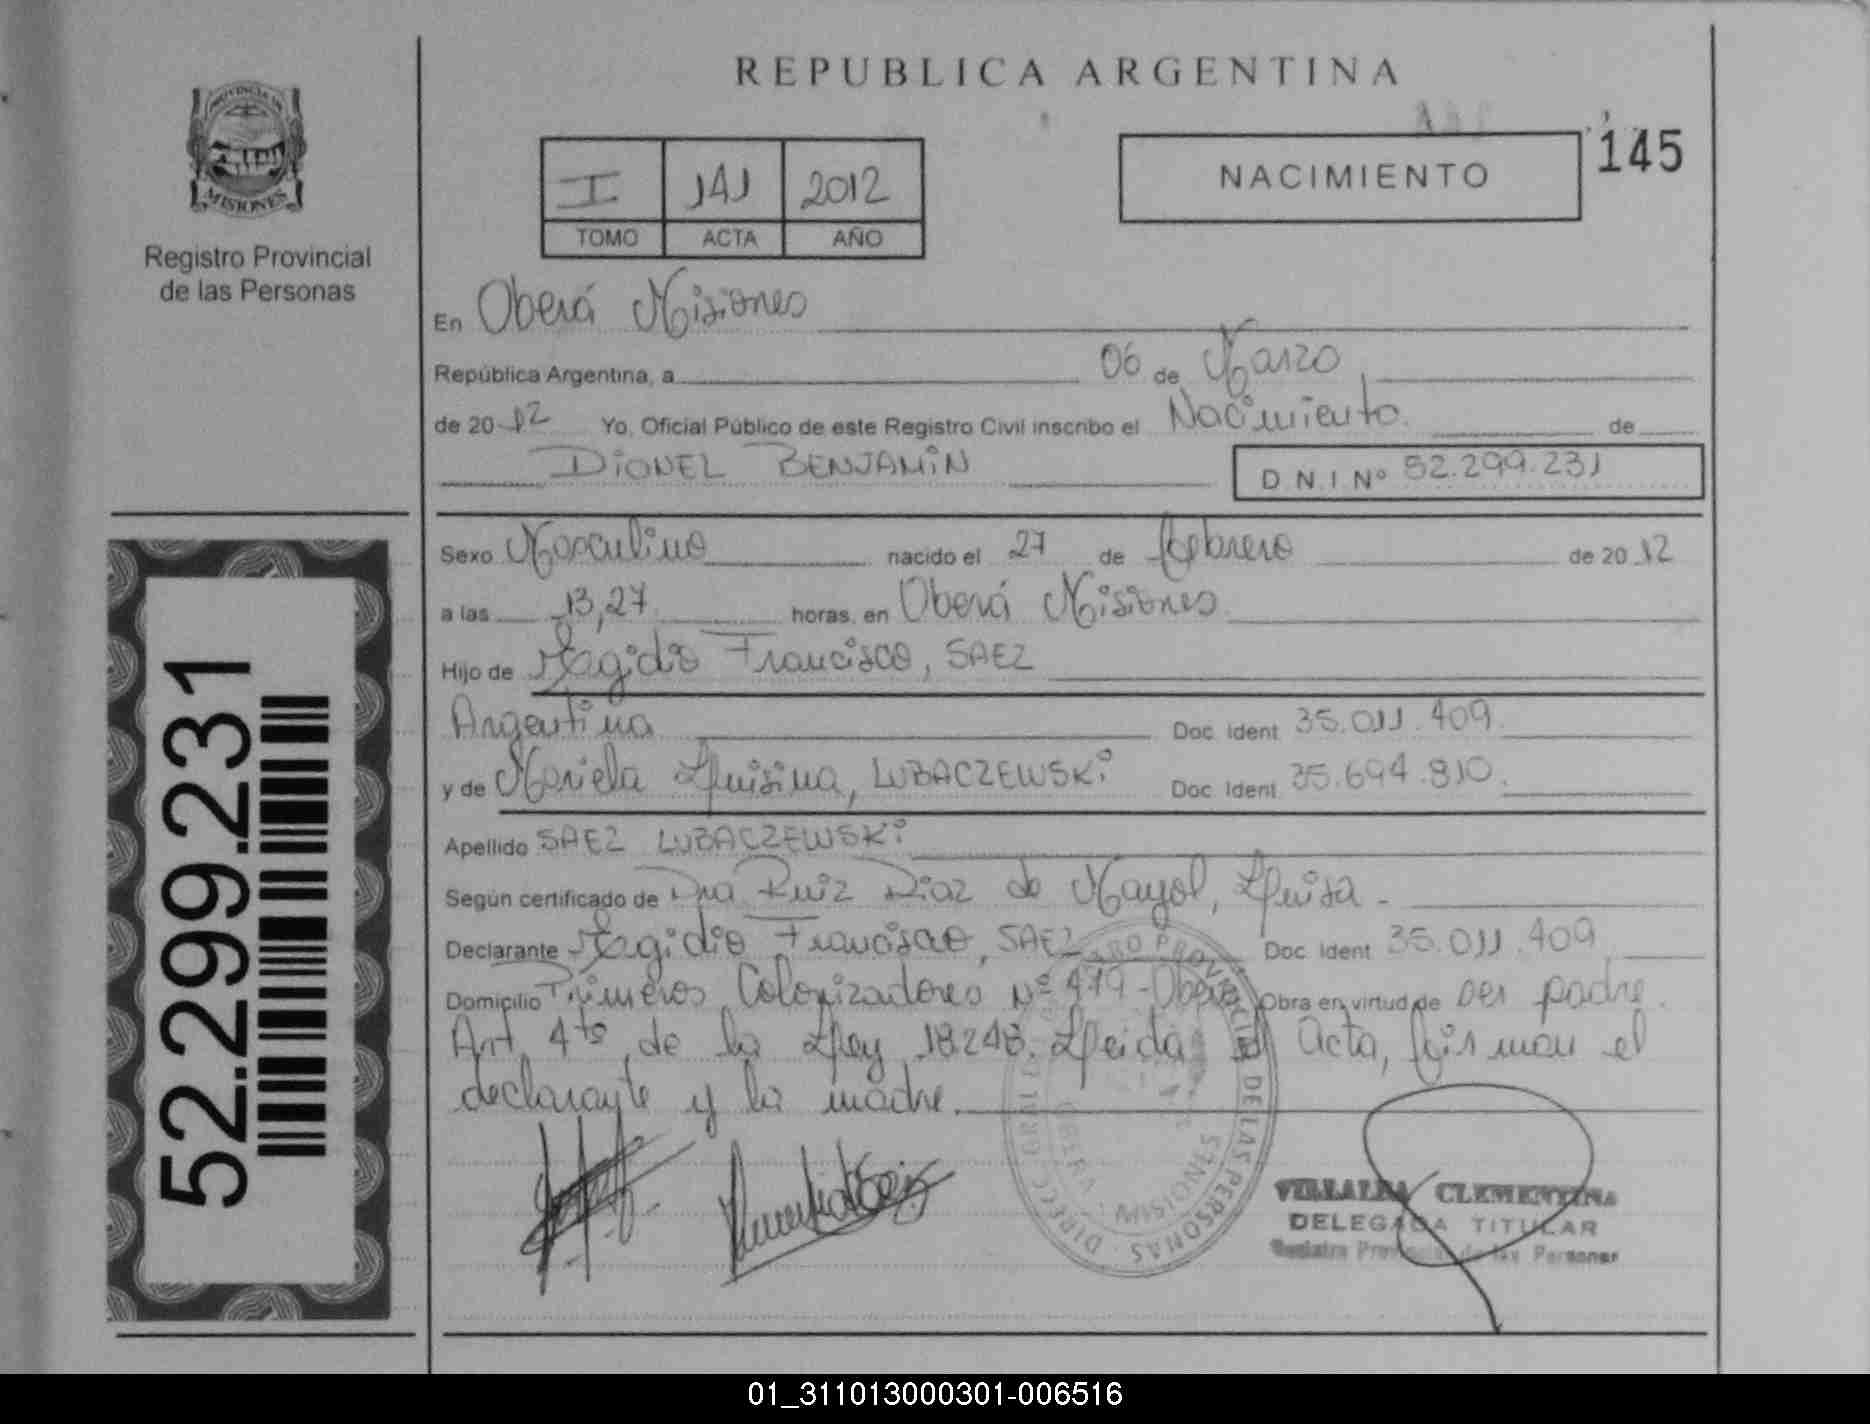 REPUBLICA ARGENTINA
PROVINCIA DE
MISIONES
Registro Provincial
de las Personas
I 141 2012
TOMO ACTA AÑO
NACIMIENTO
145
En Oberá Misiones
República Argentina, a 06 de Marzo
de 2012 Yo, Oficial Público de este Registro Civil inscribo el Nacimiento de
DIONEL BENJAMIN D.N.I Nº 52.299.231
Sexo Masculino nacido el 27 de febrero de 2012
a las 13,27 horas, en Oberá Misiones
Hijo de Francisco, SAEZ
Argentina Doc. Ident. 35.011.409
y de Mariela Luisina, LUBACZEWSKI Doc. Ident. 35.694.810
Apellido SAEZ LUBACZEWSKI
Según certificado de Dra Ruiz Diaz de Mayol, Luisa -
Declarante Francisco, SAEZ Doc. Ident. 35.011.409
Domicilio Primeros Colonizadores Nº 479-Oberá Obra en virtud de ser padre.
Art. 4to de la Ley 18248. Leida el Acta, firman el
declarante y la madre.
52.299.231
DIRECC. GRAL DEL REGISTRO PROVINCIAL DE LAS PERSONAS
OBERA
MISIONES
VILLALBA CLEMENTINA
DELEGADA TITULAR
Registro Provincial de las Personas
01_311013000301-006516